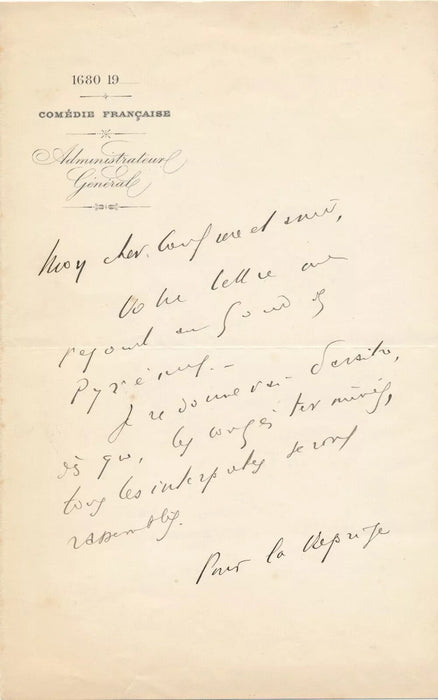 1680 19
COMÉDIE FRANÇAISE
Administrateur
Général
Mon cher confrère et ami,
Votre lettre me
rejoint au fond des
Pyrénées.-
Je redonnerai
dès que, les congés terminés,
tous les interprètes seront
rassemblés.
Pour la Reprise